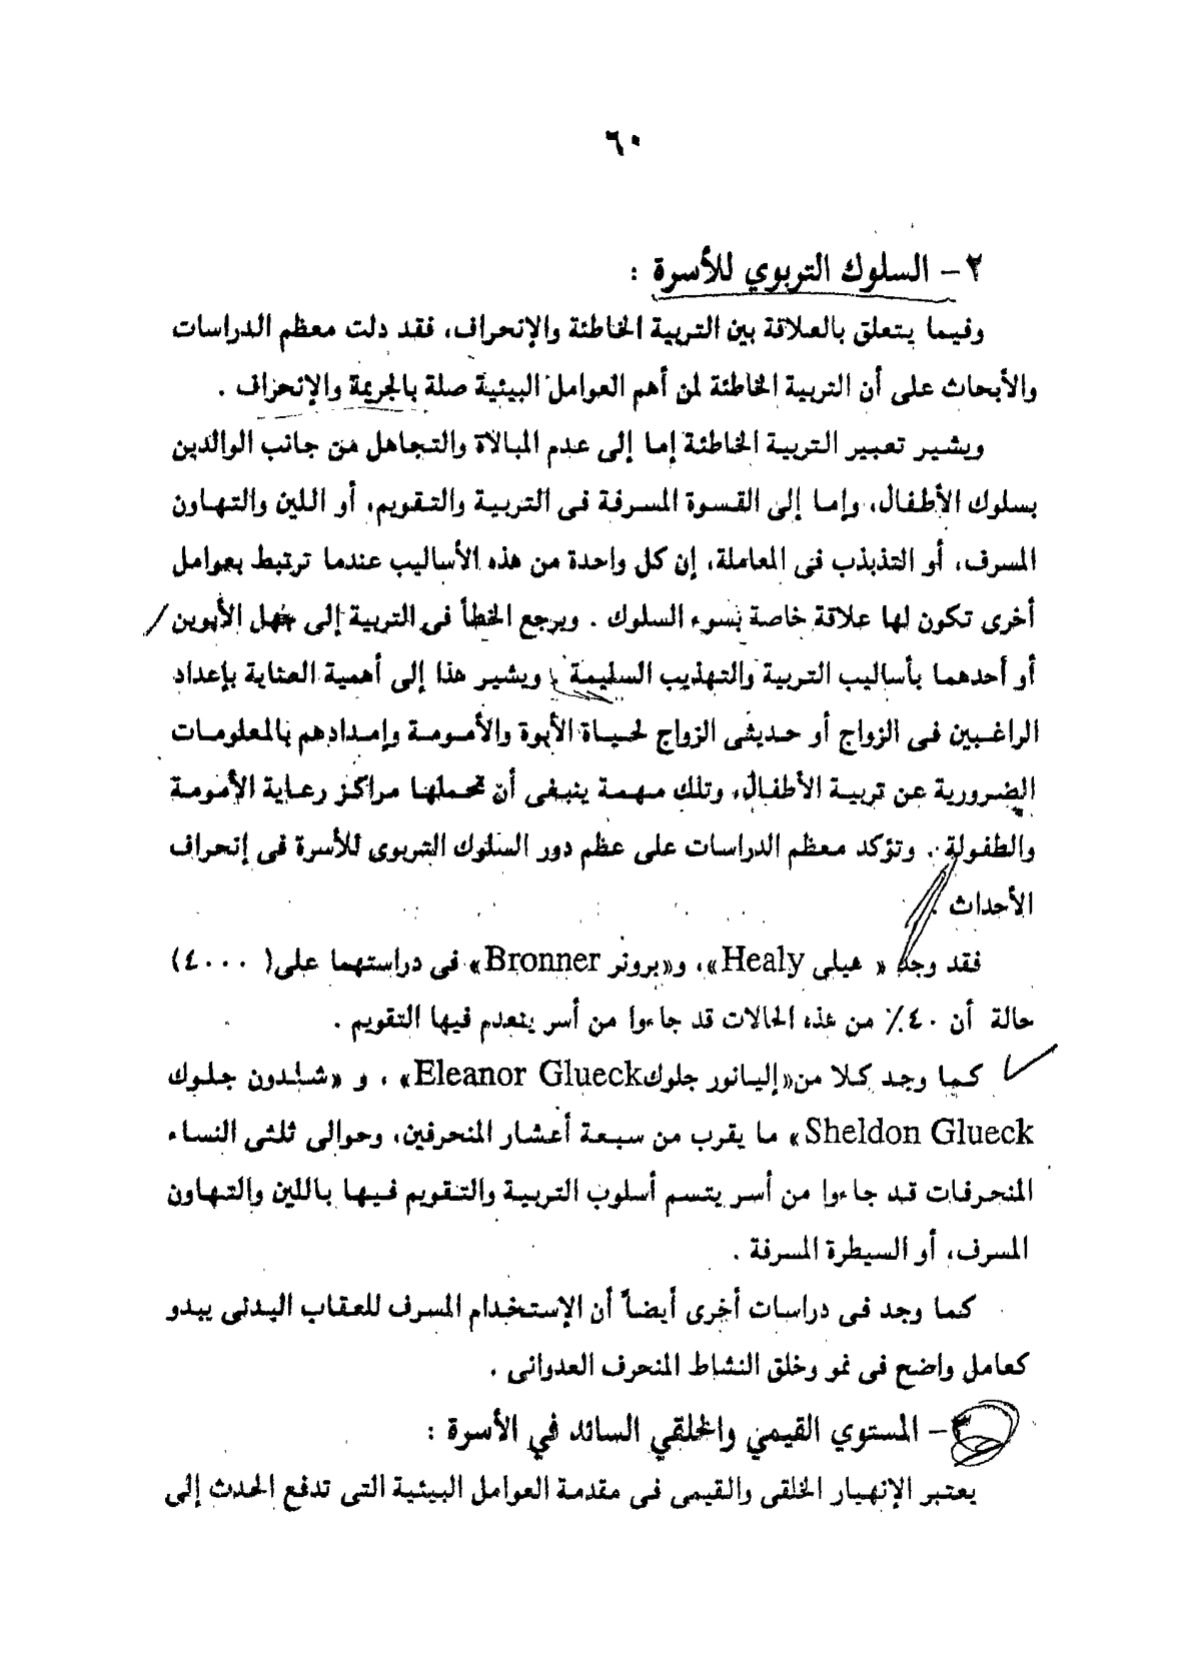 ٦٠
٢- السلوك التربوي للأسرة :
وفيما يتعلق بالعلاقة بين التربية الخاطئة والإنحراف، فقد دلت معظم الدراسات
والأبحاث على أن التربية الخاطئة لمن أهم العوامل البيئية صلة بالجريمة والإنحراف .
ويشير تعبير التربية الخاطئة إما إلى عدم المبالاة والتجاهل من جانب الوالدين
بسلوك الأطفال، وإما إلى القسوة المسرفة فى التربية والتقويم، أو اللين والتهاون
المسرف، أو التذبذب فى المعاملة، إن كل واحدة من هذه الأساليب عندما ترتبط بعوامل
أخرى تكون لها علاقة خاصة بسوء السلوك . ويرجع الخطأ فى التربية إلى جهل الأبوين
أو أحدهما بأساليب التربية والتهذيب السليمة . ويشير هذا إلى أهمية العناية بإعداد
الراغبين فى الزواج أو حديثى الزواج لحياة الأبوة والأمومة وإمدادهم بالمعلومات
الضرورية عن تربية الأطفال، وتلك مهمة ينبغى أن تحملها مراكز رعاية الأمومة
والطفولة . وتؤكد معظم الدراسات على عظم دور السلوك التربوى للأسرة فى إنحراف
الأحداث .
فقد وجد « هيلى Healy»، و«برونر Bronner» فى دراستهما على( ٤٠٠٠)
حالة أن ٤٠٪ من هذه الحالات قد جاءوا من أسر ينعدم فيها التقويم .
كما وجد كلا من«إليانور جلوكEleanor Glueck» ، و «شلدون جلوك
Sheldon Glueck» ما يقرب من سبعة أعشار المنحرفين، وحوالى ثلثى النساء
المنحرفات قد جاءوا من أسر يتسم أسلوب التربية والتقويم فيها باللين والتهاون
المسرف، أو السيطرة المسرفة .
كما وجد فى دراسات أخرى أيضاً أن الإستخدام المسرف للعقاب البدنى يبدو
كعامل واضح فى نمو وخلق النشاط المنحرف العدوانى .
٣- المستوي القيمي والخلقي السائد في الأسرة :
يعتبر الإنهيار الخلقى والقيمى فى مقدمة العوامل البيئية التى تدفع الحدث إلى